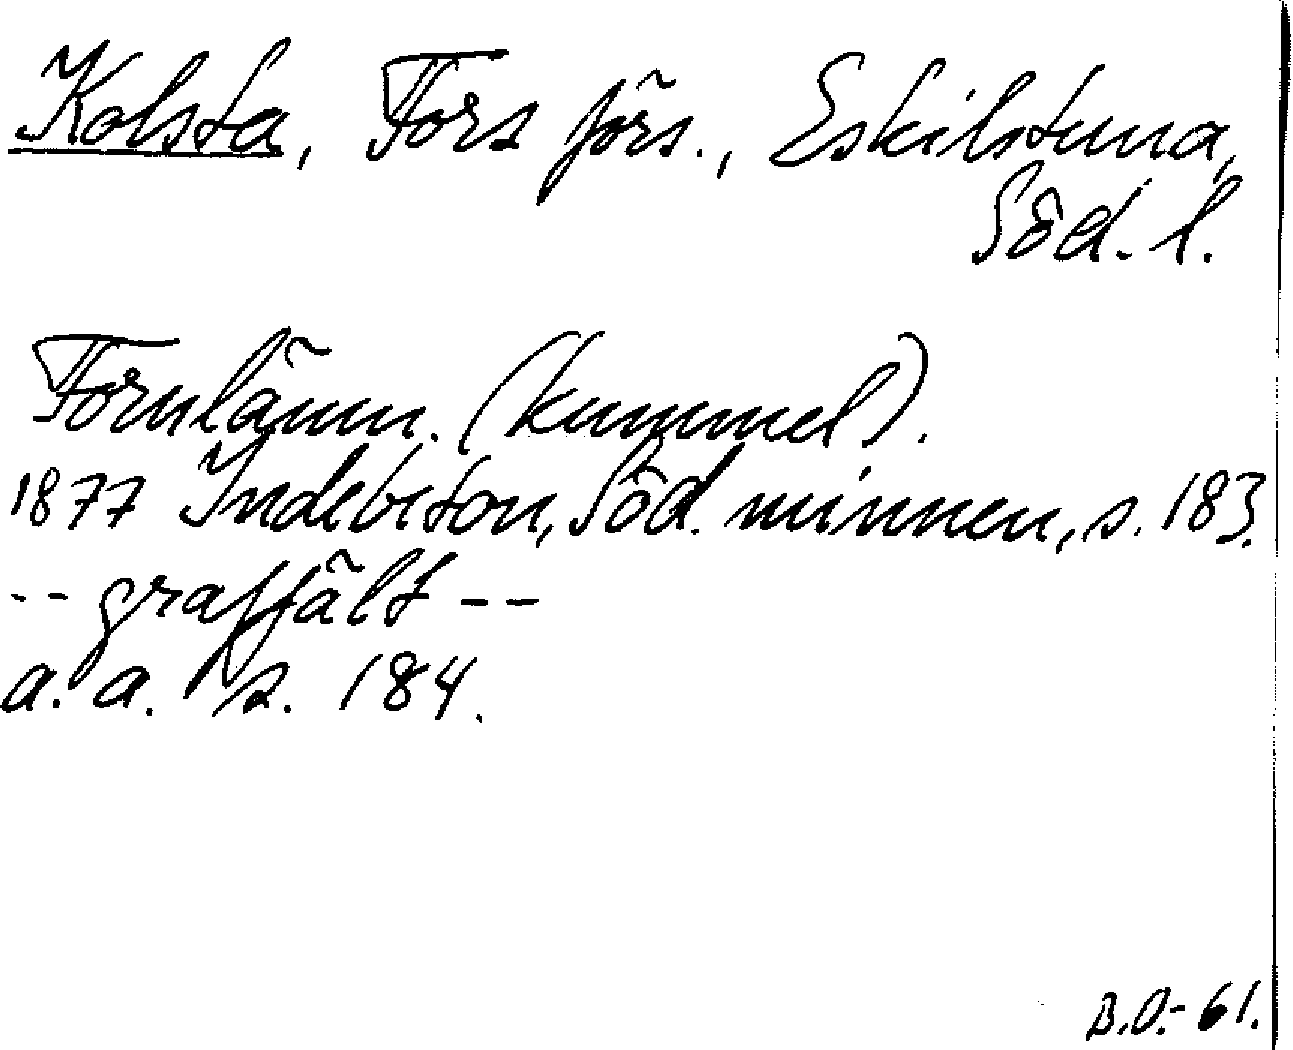 Kolsta, Fors förs., Eskilstuna,
Söd. l.
Fornlämn. (kummel).
1877 Indebetou, Söd. minnen, s. 183.
-- gravfält --
a. a. s. 184.
B.O.- 61.